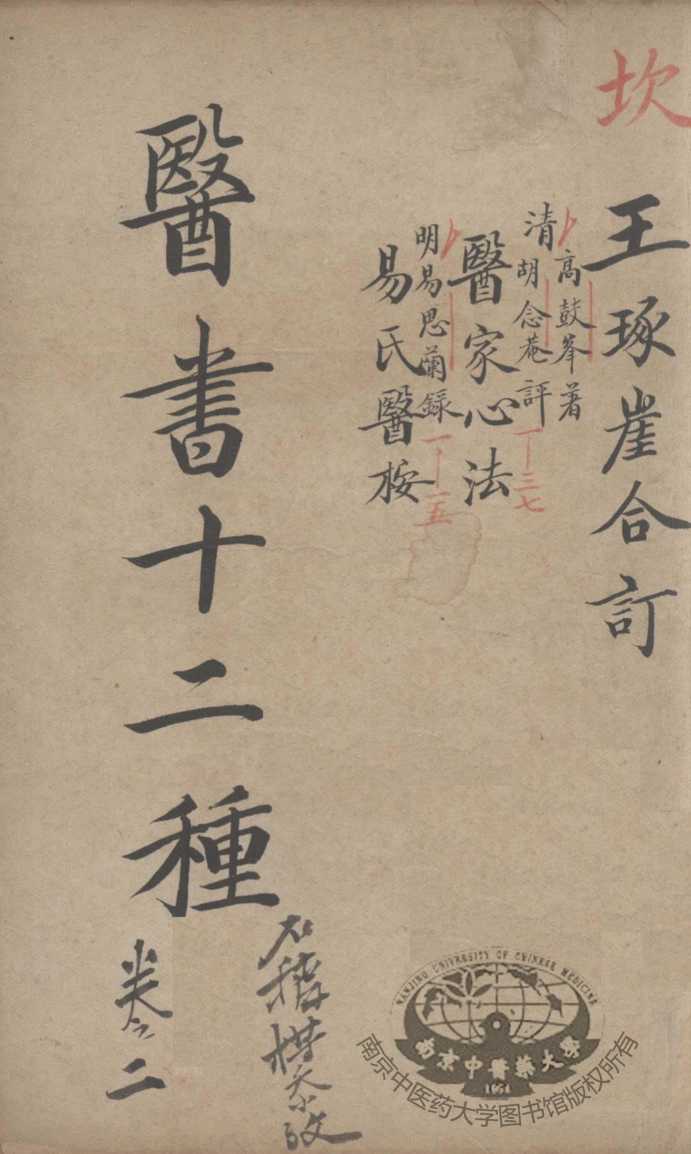 坎
王琢崖合訂
高鼓峯著
清
胡念菴評
丁三七
醫家心法
明易思蘭録
丁一五
易氏醫桉
醫書十二種
卷之二
NANJING UNIVERSITY OF CHINESE MEDICINE
南京中醫藥大學
南京中医药大学图书馆版权所有